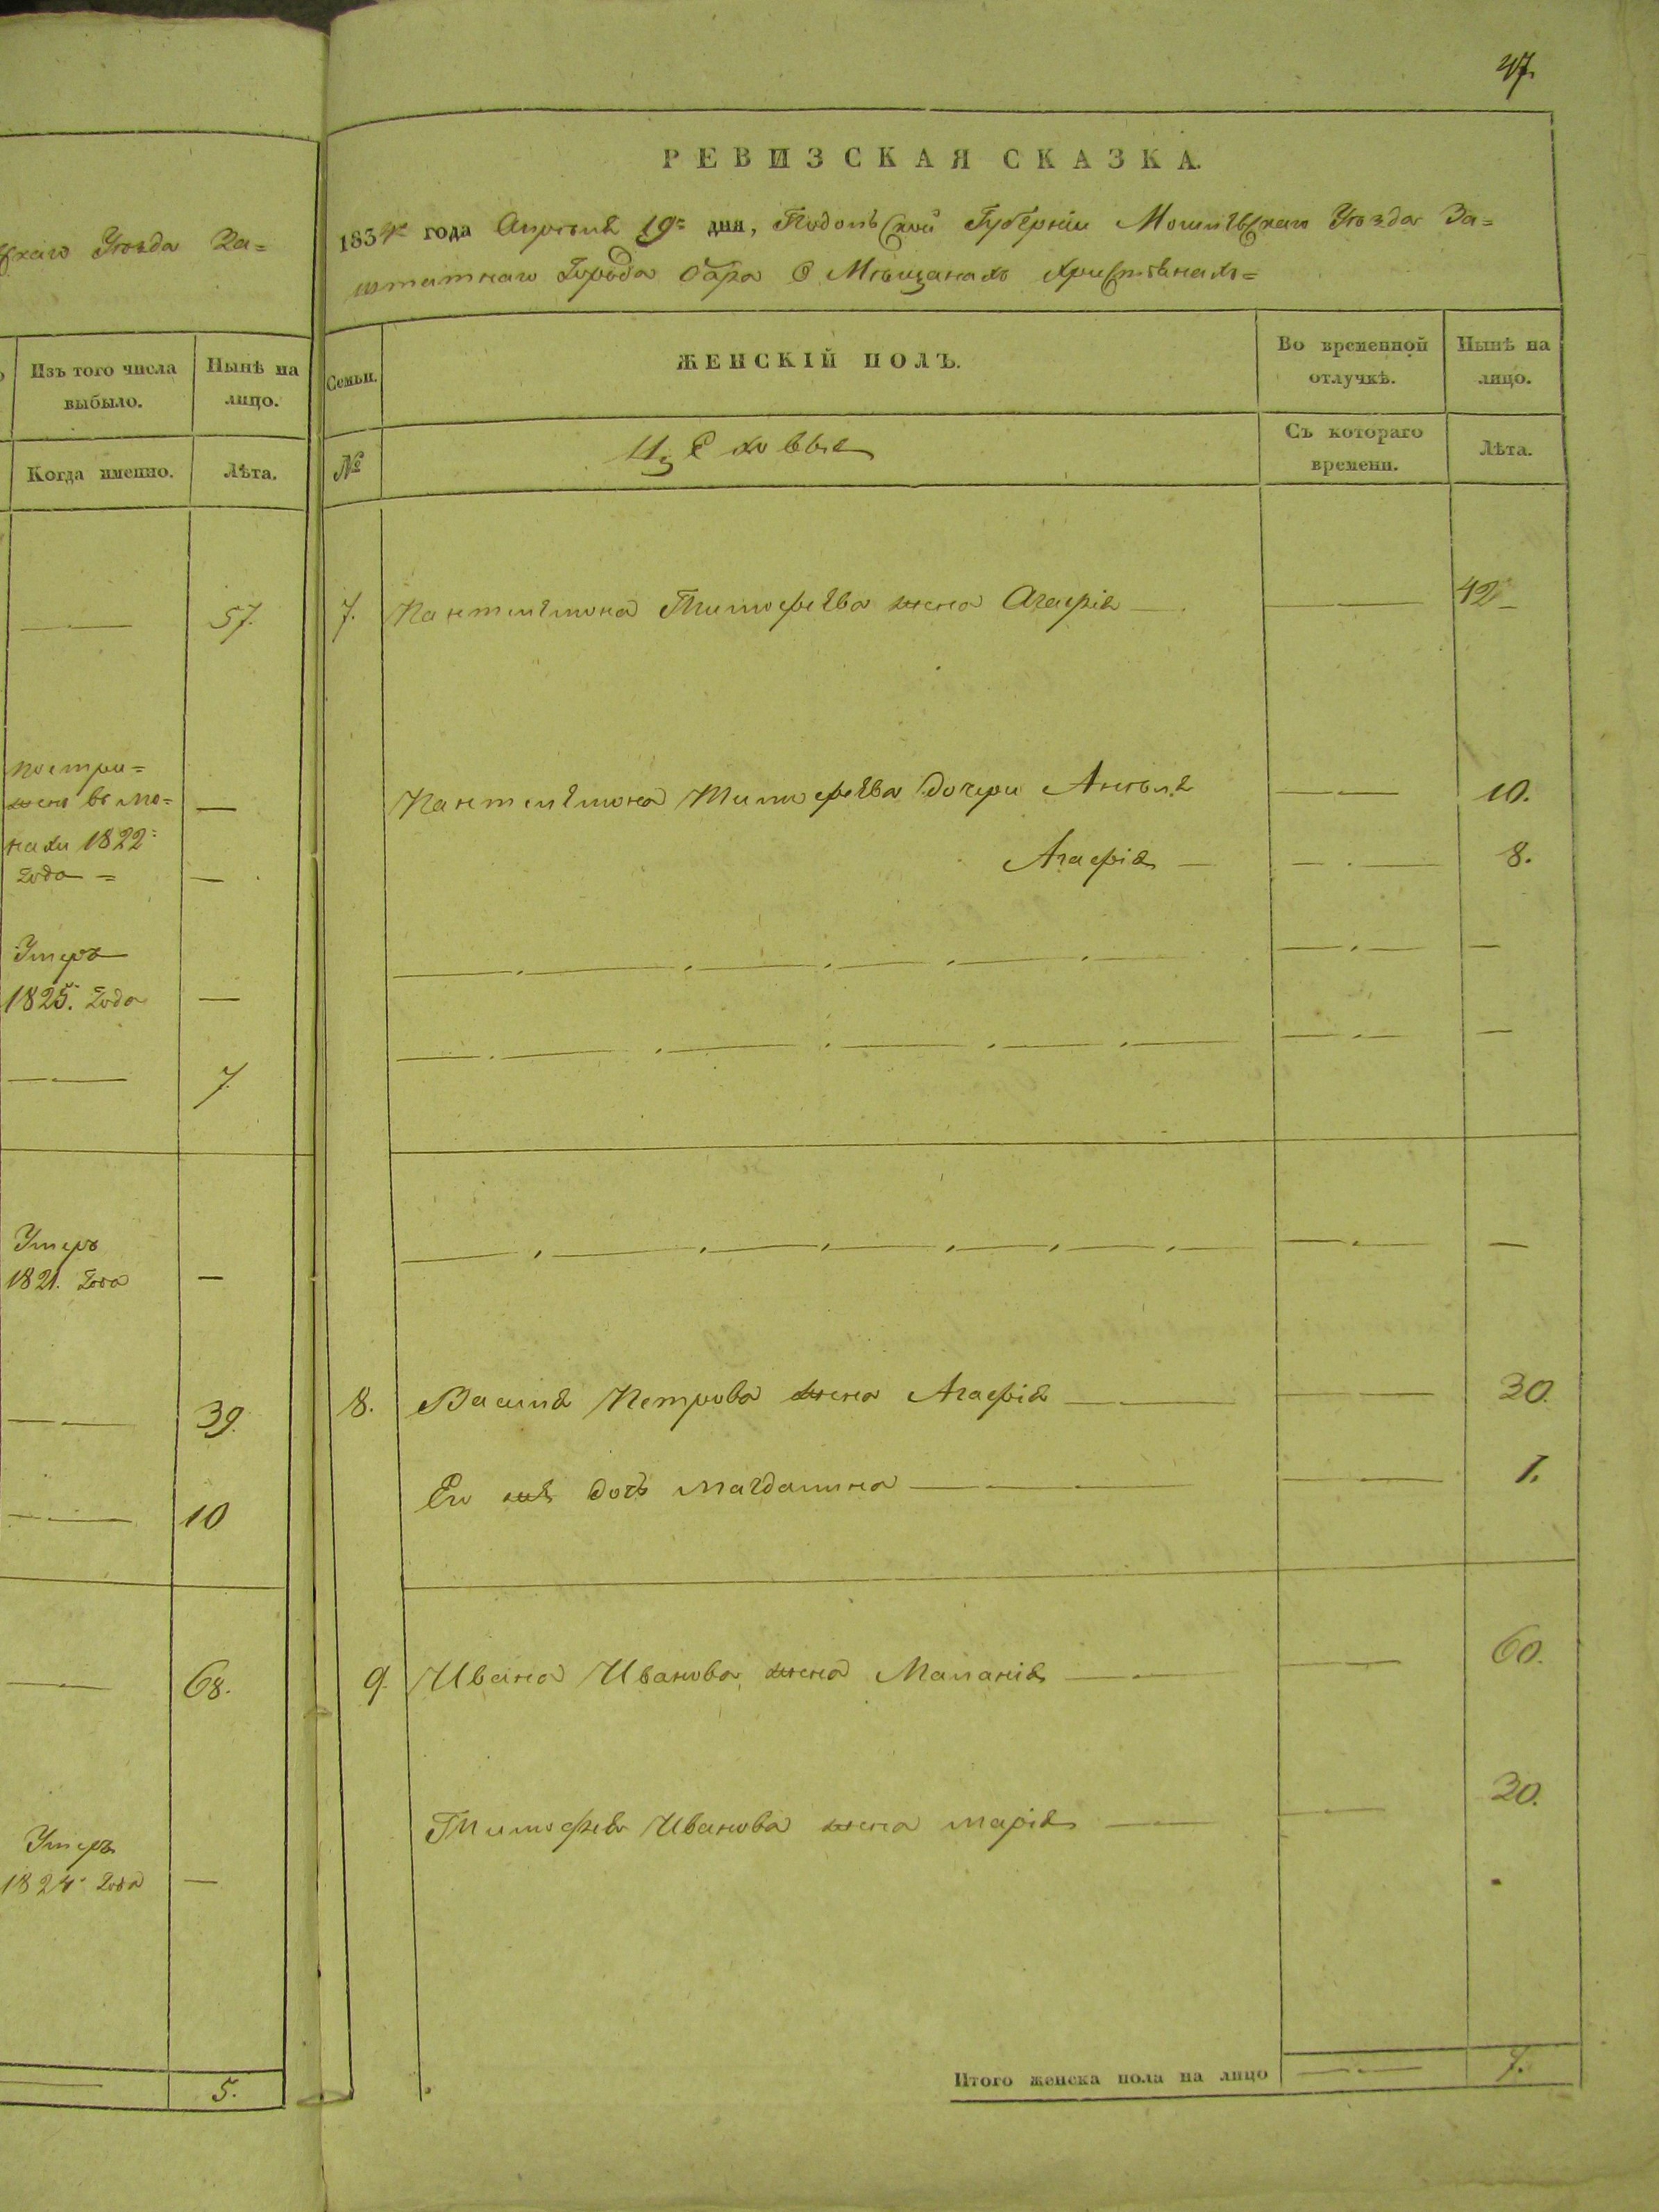 скаго Уѣзда За=
Изъ того числа выбыло.
Нынѣ на лицо.
Когда именно.
Лѣта.
57.
постри=
жено въ мо=
нахи 1822
года =
Умеръ
1825. года
7
Умеръ
1821. года
39.
10
68.
Умеръ
1824 года
5.
47.
РЕВИЗСКАЯ СКАЗКА.
1834 года Апрѣля 19 дня, Подольской Губерніи Могилевскаго Уѣзда За=
штатнаго Города Бара О Мѣщанахъ Христіянахъ=
Семьи.
ЖЕНСКІЙ ПОЛЪ.
Во временной отлучкѣ.
Нынѣ на лицо.
№
Цеховые
Съ котораго времени.
Лѣта.
7. Пантелимона Тимофеева жена Агафія 42
Пантелимона Тимофеева дочери Анѣля 10.
Агафія 8.
8. Василя Петрова жена Агафія 30.
Его же дочь магдалина 1.
9. Ивана Иванова жена Маланія 60.
Тимофея Иванова жена марія 30.
Итого женска пола на лицо 7.